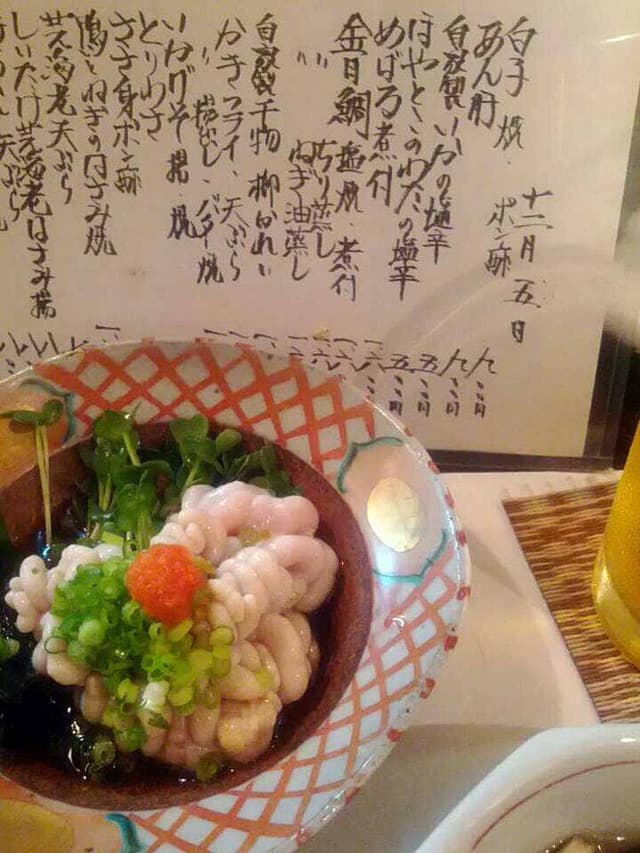 十二月五日
白子 焼・ポン酢
あん肝
自家製いかの塩辛
ほやとこのわたの塩辛
めばる煮付
金目鯛塩焼・煮付
〃 ちり蒸し
〃 ねぎ油蒸し
自家製干物 柳かれい
かきフライ、天ぷら
〃 揚出し、バター焼
いかげそ揚・焼
とりわさ
ささ身ポン酢
鴨とねぎのはさみ焼
芝海老天ぷら
しいたけ芝海老はさみ揚